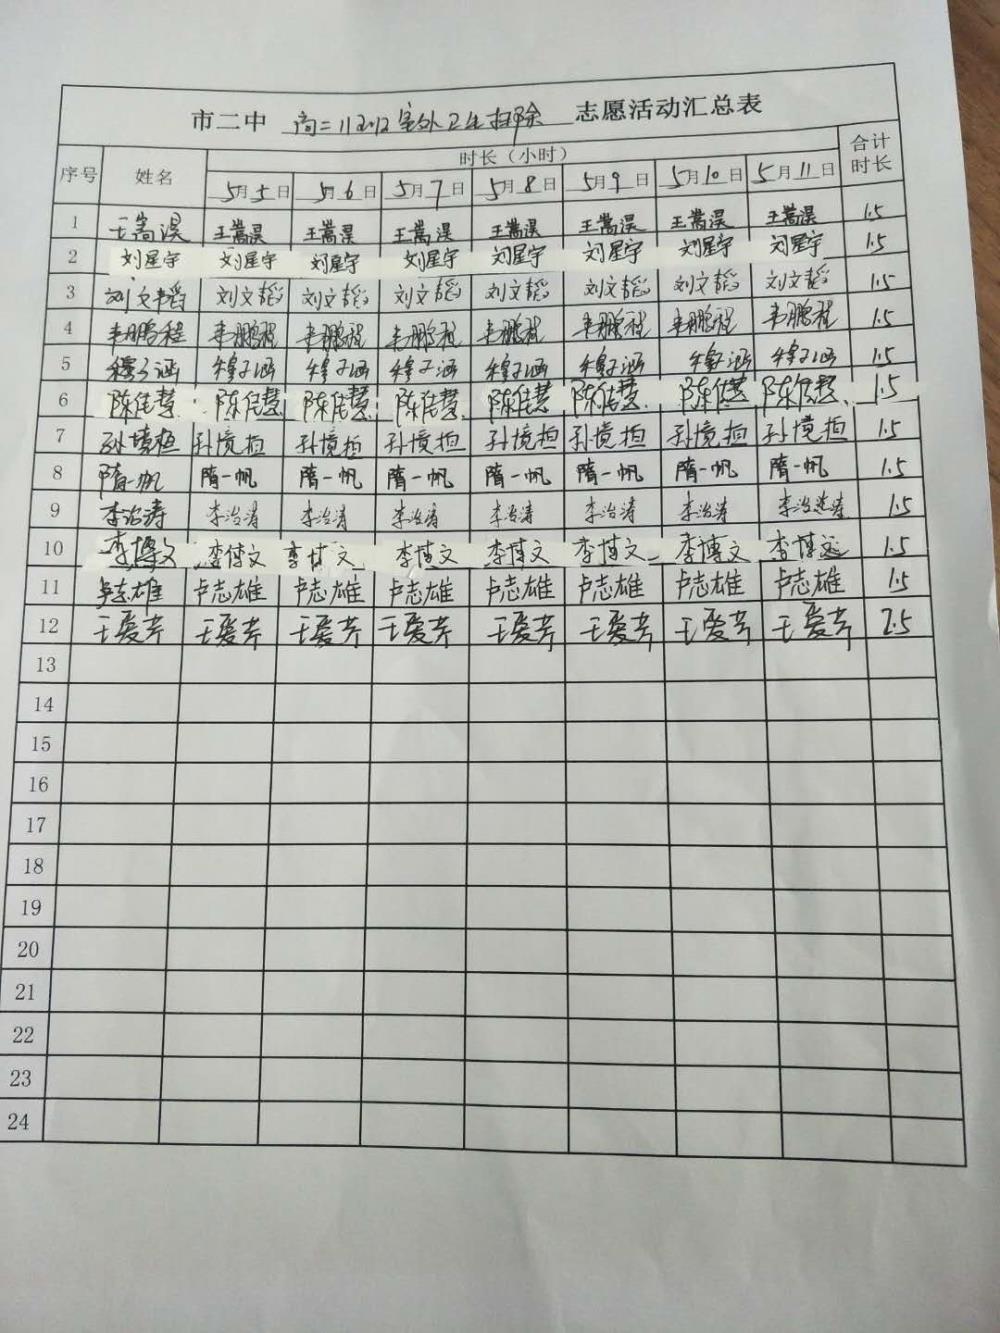 市二中 高二11212室外卫生扫除 志愿活动汇总表
序号 姓名 时长（小时） 合计时长
5月5日 5月6日 5月7日 5月8日 5月9日 5月10日 5月11日
1 王嵩淏 王嵩淏 王嵩淏 王嵩淏 王嵩淏 王嵩淏 王嵩淏 王嵩淏 1.5
2 刘星宇 刘星宇 刘星宇 刘星宇 刘星宇 刘星宇 刘星宇 刘星宇 1.5
3 刘文韬 刘文韬 刘文韬 刘文韬 刘文韬 刘文韬 刘文韬 刘文韬 1.5
4 韦鹏程 韦鹏程 韦鹏程 韦鹏程 韦鹏程 韦鹏程 韦鹏程 韦鹏程 1.5
5 穆子涵 穆子涵 穆子涵 穆子涵 穆子涵 穆子涵 穆子涵 穆子涵 1.5
6 陈佳慧 陈佳慧 陈佳慧 陈佳慧 陈佳慧 陈佳慧 陈佳慧 陈佳慧 1.5
7 孙境担 孙境担 孙境担 孙境担 孙境担 孙境担 孙境担 孙境担 1.5
8 隋一帆 隋一帆 隋一帆 隋一帆 隋一帆 隋一帆 隋一帆 隋一帆 1.5
9 李治涛 李治涛 李治涛 李治涛 李治涛 李治涛 李治涛 1.5
10 李博文 李博文 李博文 李博文 李博文 李博文 李博文 1.5
11 卢志雄 卢志雄 卢志雄 卢志雄 卢志雄 卢志雄 卢志雄 卢志雄 1.5
12 王爱芹 王爱芹 王爱芹 王爱芹 王爱芹 王爱芹 王爱芹 王爱芹 1.5
13
14
15
16
17
18
19
20
21
22
23
24